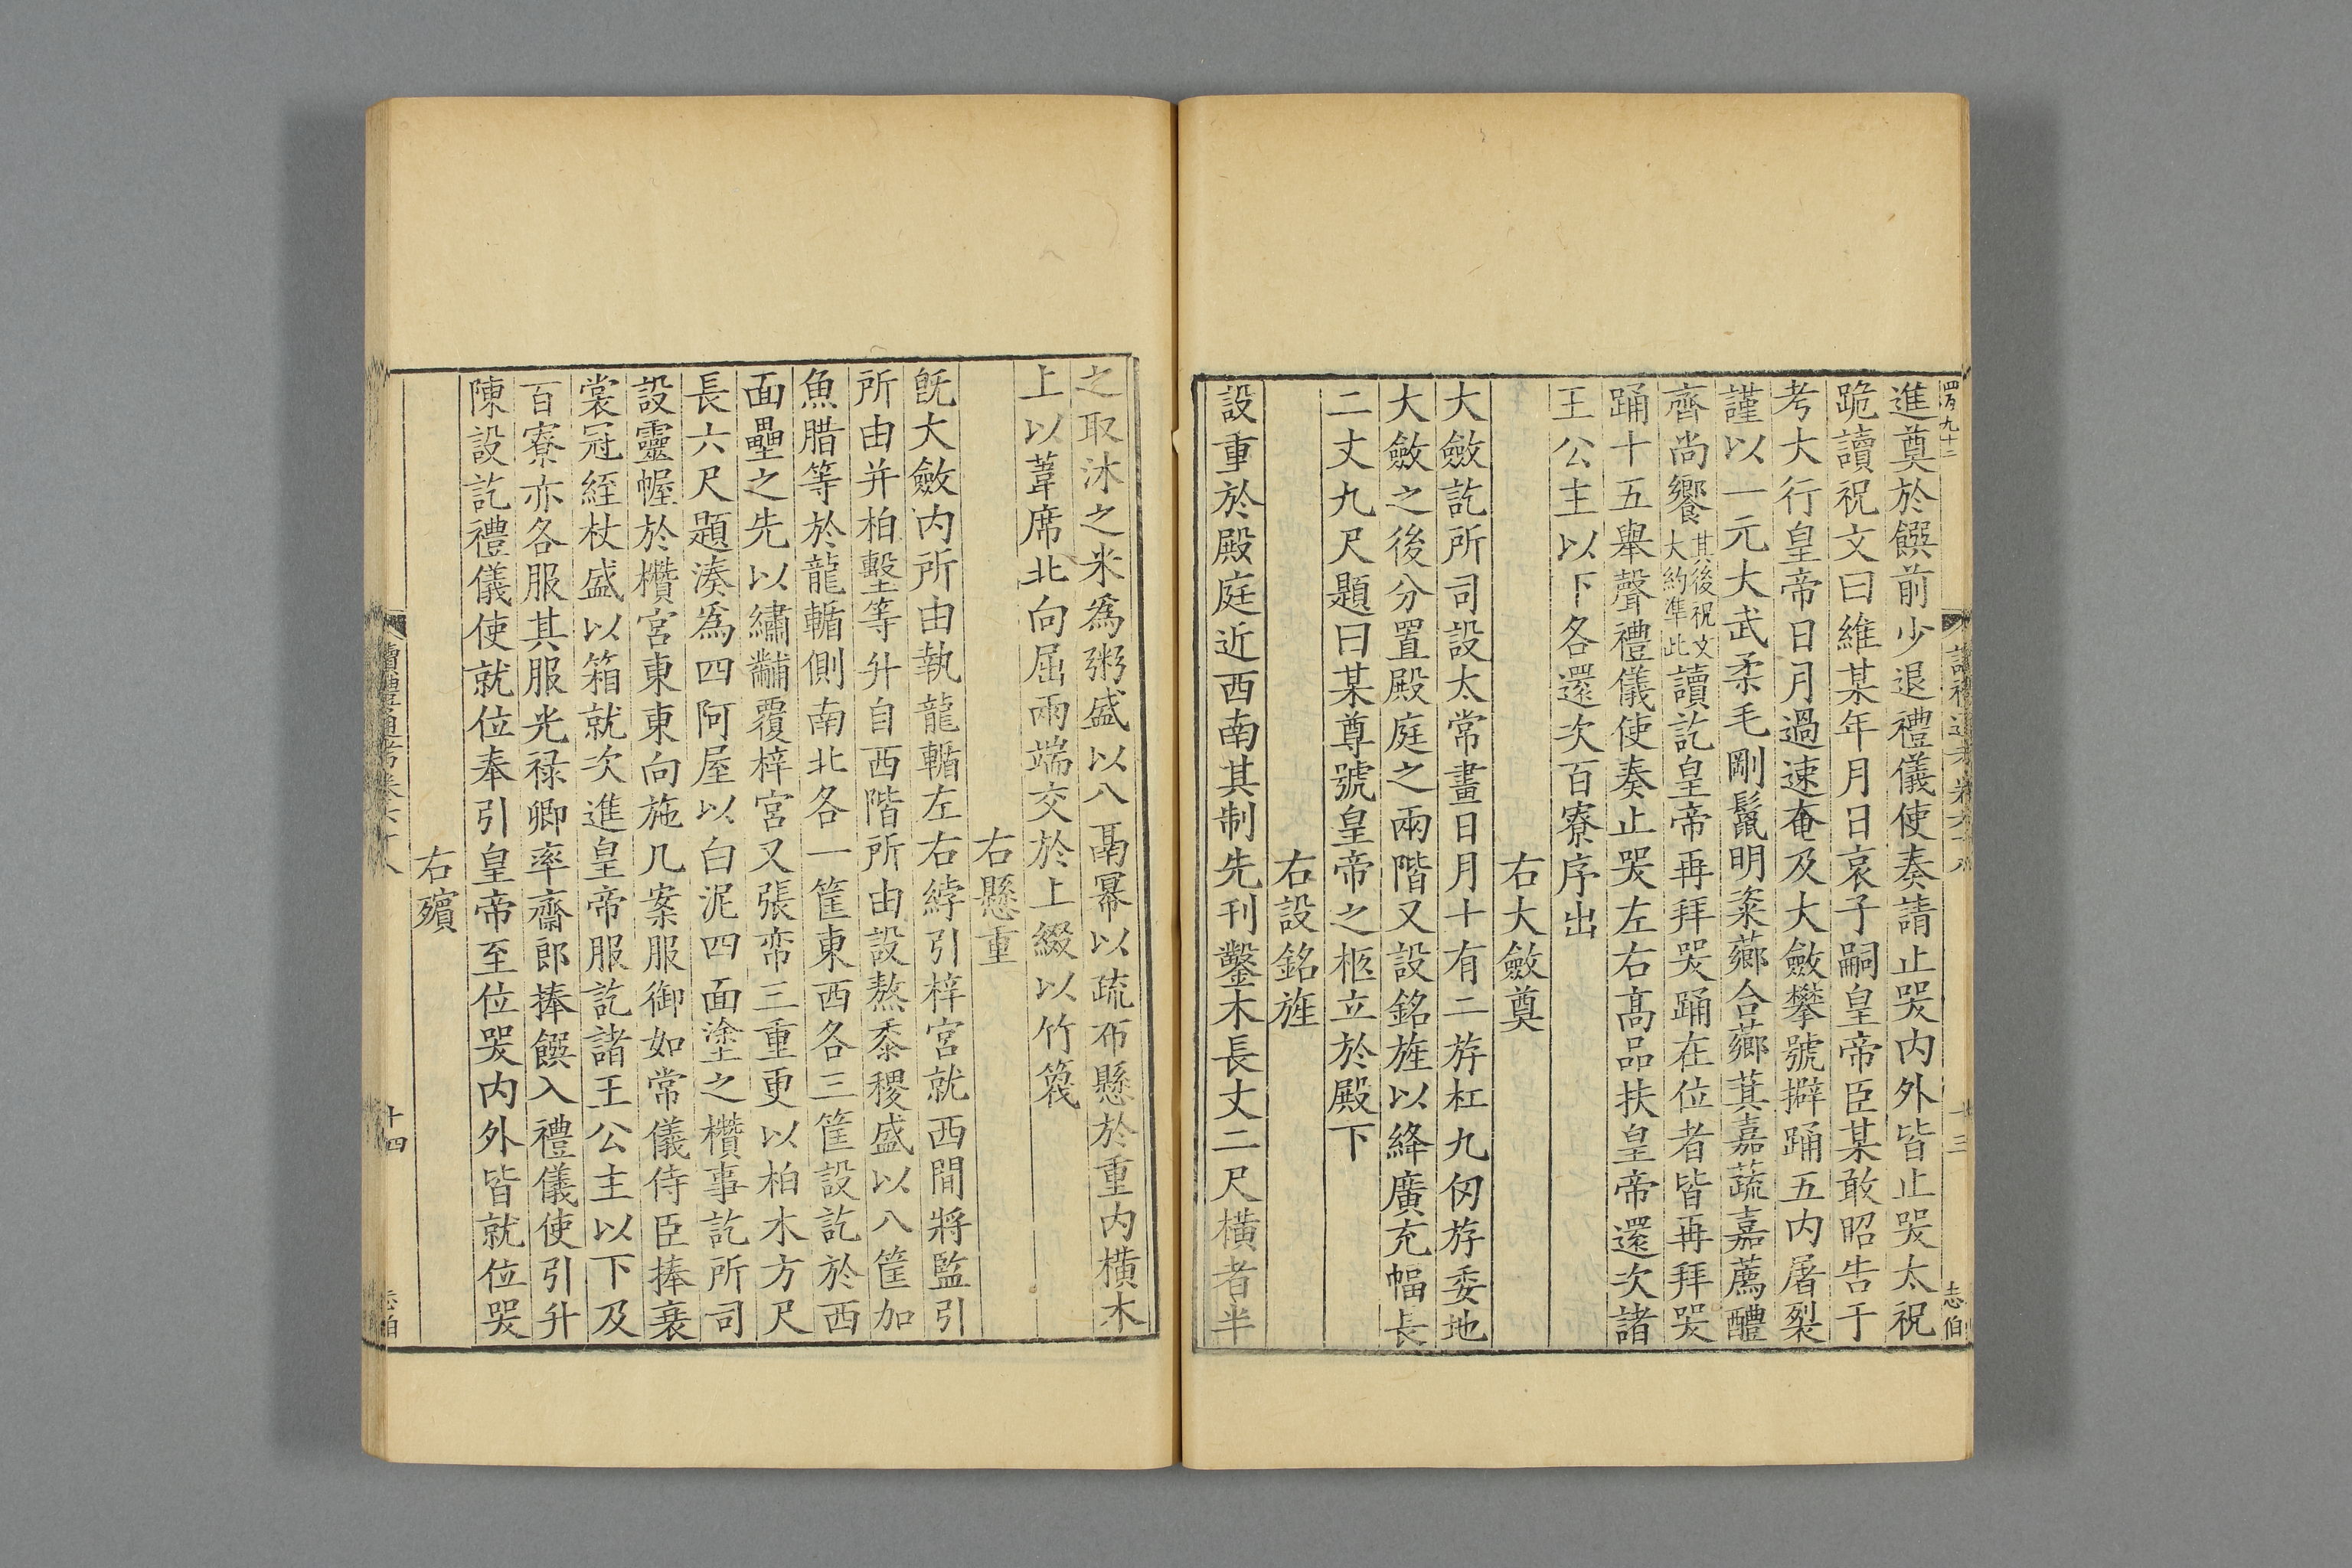 進奠於饌前少退禮儀使奏請止哭内外皆止哭太祝
跪讀祝文曰維某年月日哀子嗣皇帝臣某敢昭告于
考大行皇帝日月遄速奄及大斂攀號擗踊五内屠裂
謹以一元大武柔毛剛鬣明粢薌合薌萁嘉蔬嘉薦醴
齊尚饗其後祝文大約準此讀訖皇帝再拜哭踊在位者皆再拜哭
踊十五舉聲禮儀使奏止哭左右高品扶皇帝還次諸
王公主以下各還次百寮序出
右大斂奠
大斂訖所司設太常畫日月十有二斿杠九仞斿委地
大斂之後分置殿庭之兩階又設銘旌以絳廣充幅長
二丈九尺題曰某尊號皇帝之柩立於殿下
右設銘旌
設重於殿庭近西南其制先刊鑿木長丈二尺橫者半
之取沐之米為粥盛以八鬲冪以疏布懸於重内橫木
上以葦席北向屈兩端交於上綴以竹篾
右懸重
旣大斂内所由執龍輴左右綍引梓宮就西間將監引
所由并柏墼等升自西階所由設熬黍稷盛以八筐加
魚腊等於龍輴側南北各一筐東西各三筐設訖於西
面壘之先以繡黼覆梓宮又張帟三重更以柏木方尺
長六尺題湊為四阿屋以白泥四面塗之欑事訖所司
設靈幄於欑宮東東向施几案服御如常儀侍臣捧衰
裳冠絰杖盛以箱就次進皇帝服訖諸王公主以下及
百寮亦各服其服光禄卿率齋郎捧饌入禮儀使引升
陳設訖禮儀使就位奉引皇帝至位哭内外皆就位哭
右殯
讀禮通考卷六十八
十四